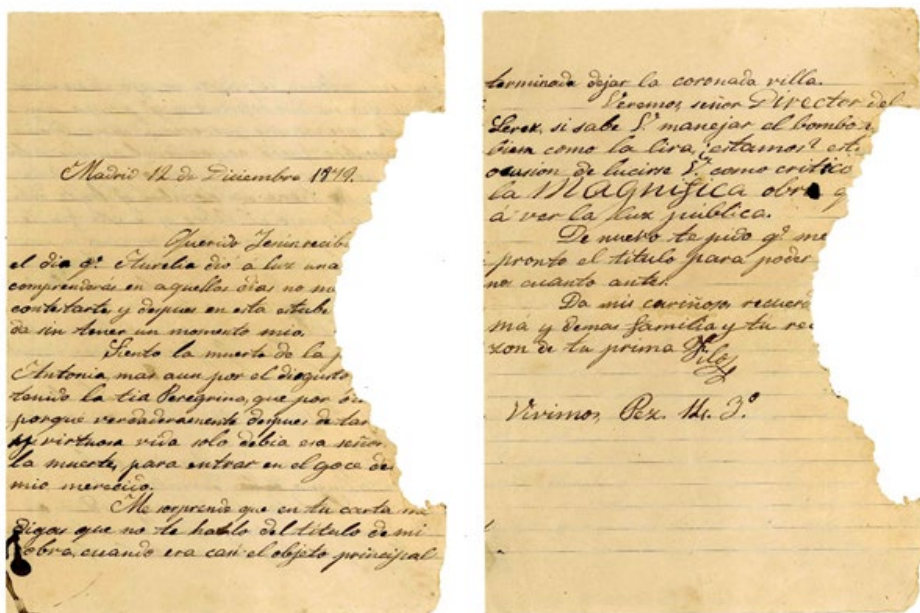 Madrid 12 de Diciembre 1879.
Querido Jenin recibi
el dia qe. Aurelia dió á luz una
comprenderas en aquellos dias no
contestarte y despues en esta estube
da sin tener un momento mio.
Siento la muerte de la p
Antonia, mas aun por el disgusto
tenido la tia Peregrina, que por
porque verdaderamente despues de tan
virtuosa vida solo debia esa señor
la muerte, para entrar en el goce de
mio merecido.
Me sorprende que en tu carta me
digas que no te hablo del titulo de mi
obra, cuando era casi el objeto principal
terminada dejar la coronada villa.
Veremos, señor Director del
Lerez, si sabe V. manejar el bombo
bien como la lira, ¿estamos? est
ocasion de lucirse V. como critico
la MAGNIFICA obra q
á ver la luz pública.
De nuevo te pido qe. me
pronto el titulo para poder
nos cuanto antes.
Da mis cariñosos recuerd
má y demas familia y tu
zon de tu prima
Vivimos, Pez. 3.º